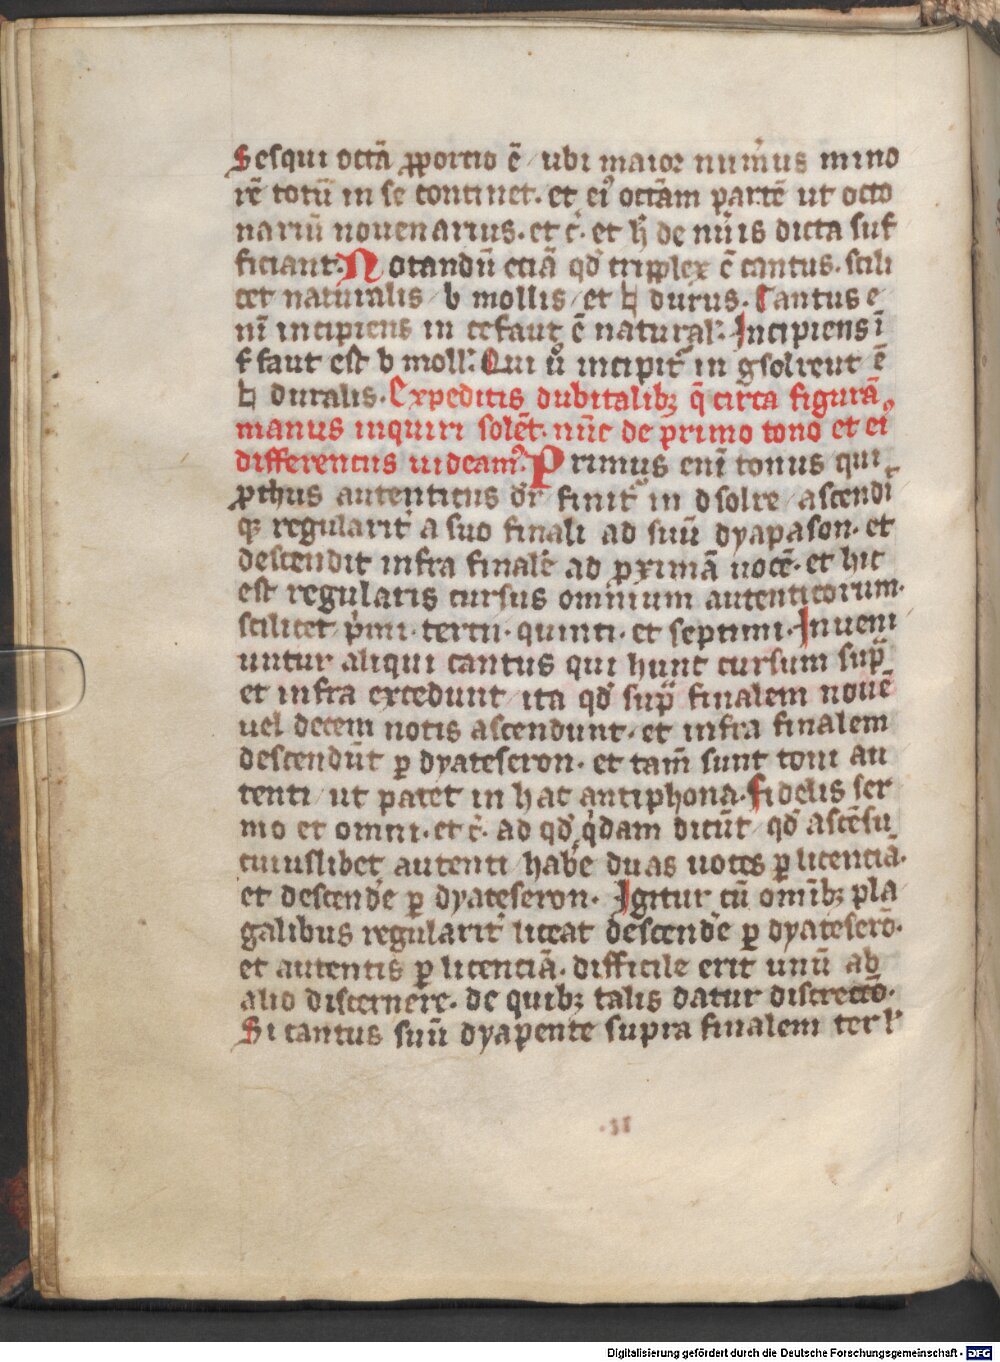 Sesqui octā ꝓporcio ē / ubi maior numẻus mino
rē totū in se continet · et eiꝰ octām partē ut octo
nariū novenarius · et c̉ · et h̄ de nūis dicta suf
ficiant · Notandū eciā qd̛ triplex ē cantus · scili
cet naturalis / b mollis / et ♮ durus · Cantus e
nī incipiens in cefaut ē natural̛ · Incipiens ī
f faut est b moll̛ · Qui ṽ incipit̛ in gsolreut ē
♮ duralis · Expeditis dubitalibꝫ q̄ circa figurā
manus inquiri solēt · nūc de primo tono et eiꝰ
differenciis videamꝰ · Primus enī tonus qui
ꝓthus autenticus dr̄ finit̛ in dsolre / ascendi
qꝫ regularit̛ a suo finali ad suū dyapason · et
descendit infra finalē ad ꝓximā vocē · et hic
est regularis cursus omnium autenticorum ·
scilicet / p̛mi · tercii · quinti · et septimi · Inveni
untur aliqui cantus qui hunc cursum sup̄
et infra excedunt / ita qd̛ sup̄ finalem novē
vel decem notis ascendunt · et infra finalem
descendūt ꝑ dyateseron · et tam̄ sunt toni au
tenti / ut patet in hac antiphona · Fidelis ser
mo et omni · et c̉ · ad qd̛ q̛dam dicūt / qd̛ ascēsu
cuiuslibet autenti / habē duas voces ꝑ licenciā ·
et descendē ꝑ dyateseron · Igitur cū omībꝫ pla
galibus regularit̛ liceat descendē ꝑ dyateserō ·
et autentis ꝑ licenciā · difficile erit unū ab
alio discernere · de quibꝫ talis datur discreccō ·
Si cantus suū dyapente supra finalem ter l̛
Digitalisierung gefördert durch die Deutsche Forschungsgemeinschaft - DFG